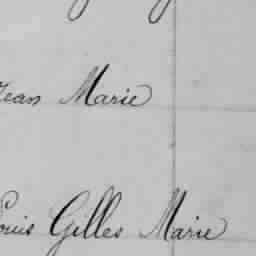 Jean Marie
Louis Gilles Marie